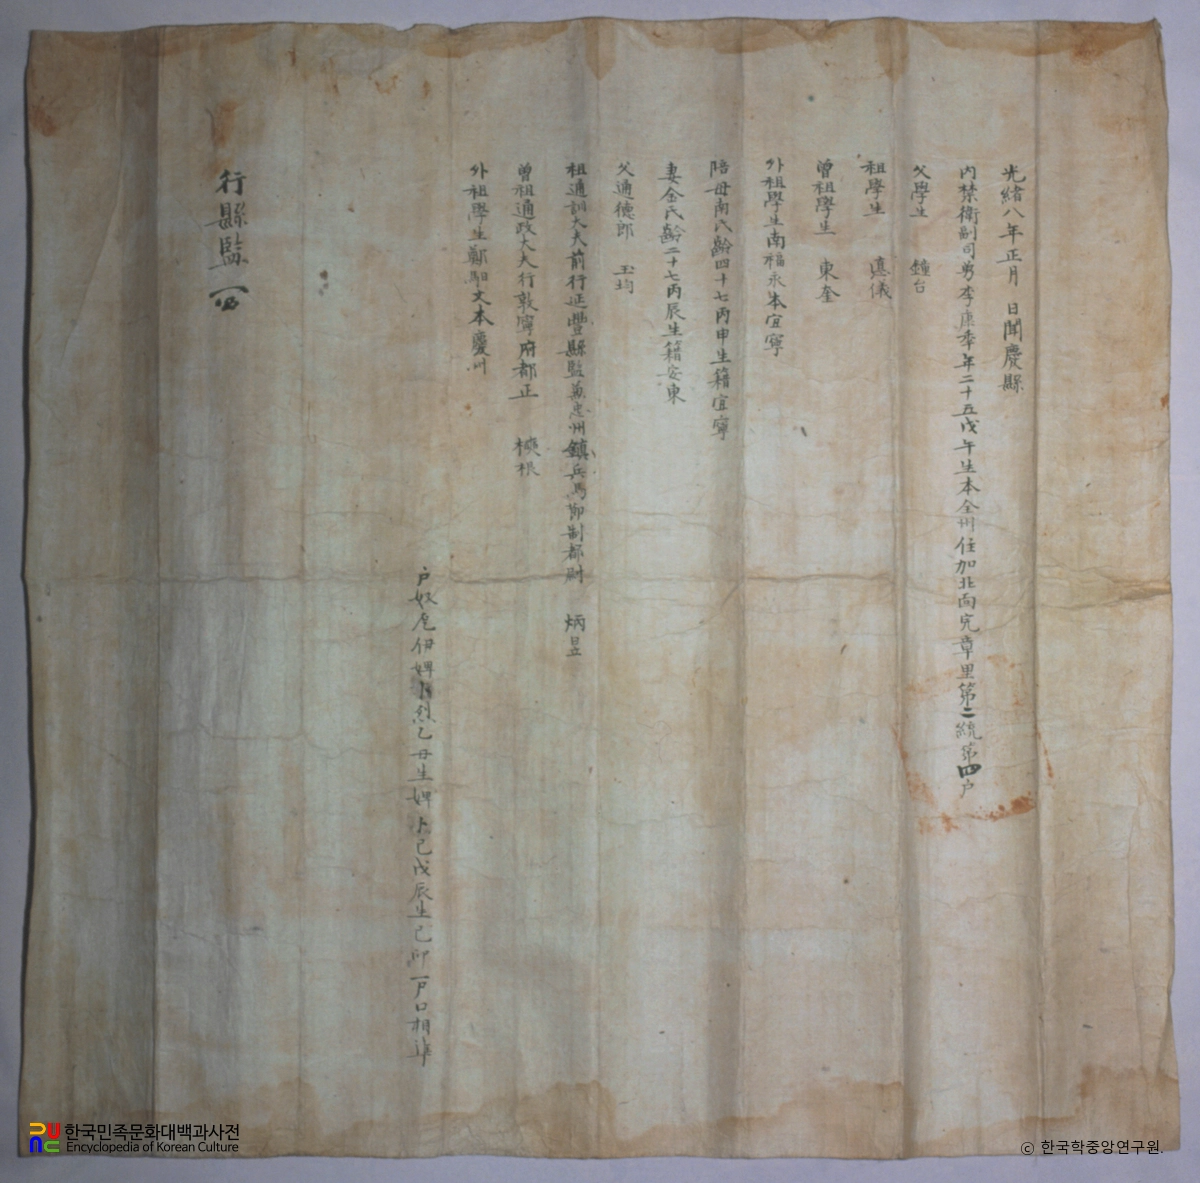 光緖八年正月 日聞慶縣
內禁衛副司勇李康季年二十五戊午生本全州住加北面完章里第二統第四戶
父學生 鍾台
祖學生 進儀
曾祖學生 東奎
外祖學生南福永本宜寧
陪母南氏齡四十七丙申生籍宜寧
妻金氏齡二十七丙辰生籍安東
父通德郞 玉均
祖通訓大夫前行延豐縣監兼忠州鎭兵馬節制都尉 炳昱
曾祖通政大夫行敦寧府都正 根
外祖學生鄭 文本慶州
戶奴 伊婢 烈乙丑生婢卜已戊辰生己卯戶口相準
行縣監
한국민족문화대백과사전
Encyclopedia of Korean Culture
ⓒ 한국학중앙연구원.